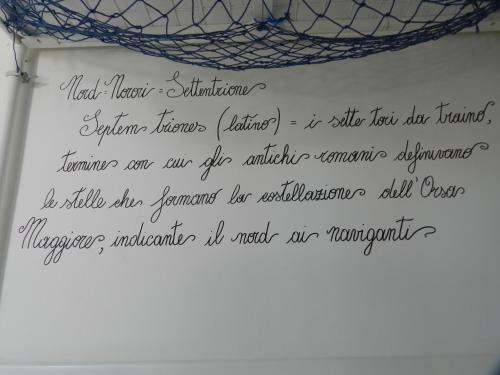 Nord = Norori = Settentrione
Septem triones (latino) = i sette tori da traino,
termine con cui gli antichi romani definivano
le stelle che formano la costellazione dell'Orsa
Maggiore, indicante il nord ai naviganti